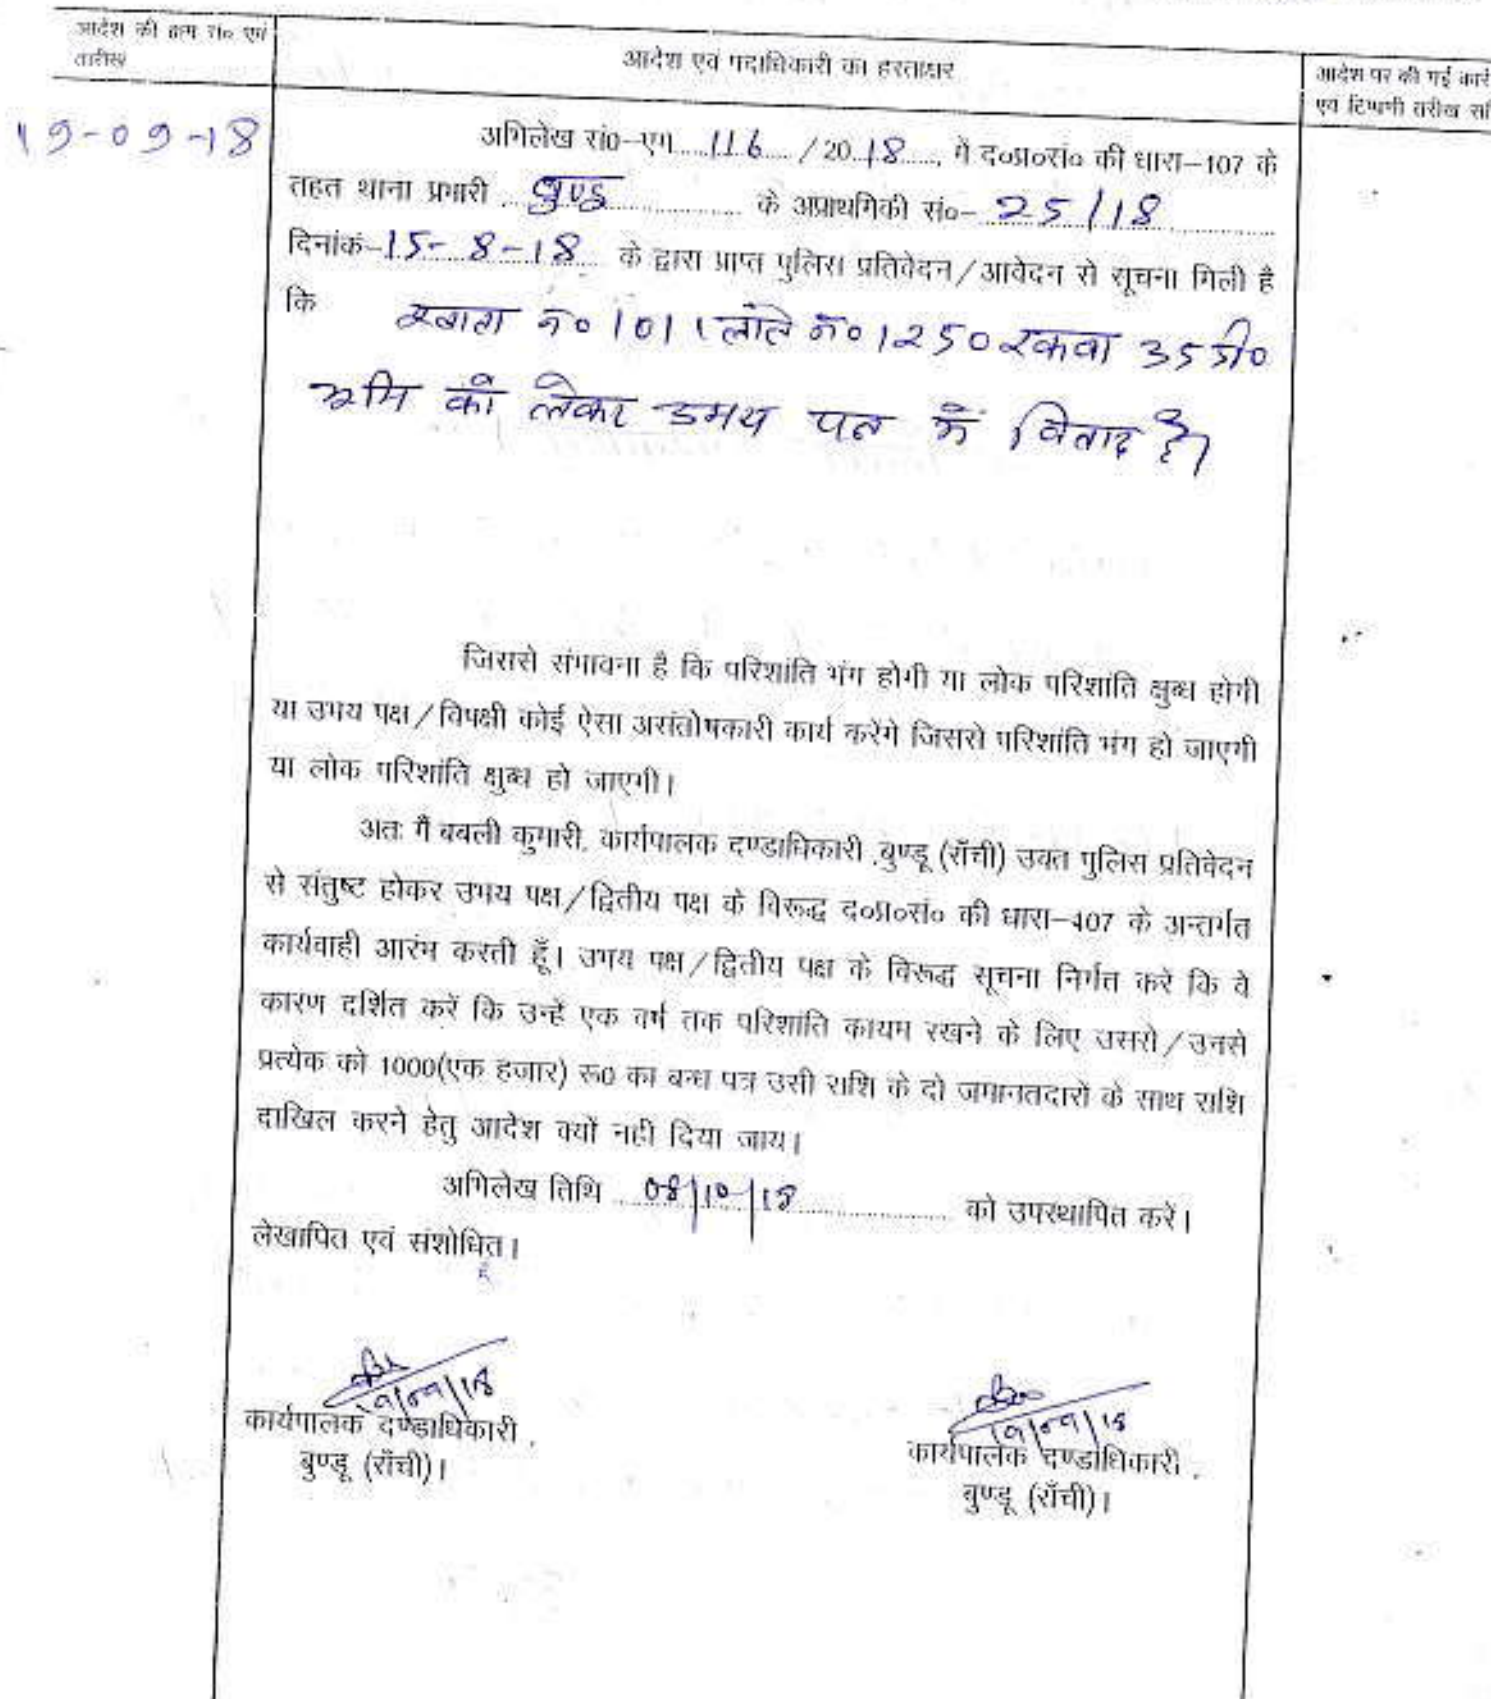 आदेश की क्रम सं० एवं
तारीख
आदेश एवं पदाधिकारी का हस्ताक्षर
आदेश पर की गई कार्र
एवं टिप्पणी तारीख सहि
19-09-18
अभिलेख सं0-एम 116 / 2018, में द०प्र०सं० की धारा-107 के
तहत थाना प्रभारी बुण्डू के अप्राथमिकी सं०- 25/18
दिनांक-15-8-18 के द्वारा प्राप्त पुलिस प्रतिवेदन/आवेदन से सूचना मिली है
कि खाता नं० 101 नं० 1250 रकवा 35 डी०
को लेकर उभय पक्ष में विवाद है।
जिससे संभावना है कि परिशांति भंग होगी या लोक परिशांति क्षुब्ध होगी
या उभय पक्ष/विपक्षी कोई ऐसा असंतोषकारी कार्य करेंगे जिससे परिशांति भंग हो जाएगी
या लोक परिशांति क्षुब्ध हो जाएगी।
अतः मैं बबली कुमारी, कार्यपालक दण्डाधिकारी ,बुण्डू (राँची) उक्त पुलिस प्रतिवेदन
से संतुष्ट होकर उभय पक्ष/द्वितीय पक्ष के विरूद्ध द०प्र०सं० की धारा-107 के अन्तर्गत
कार्यवाही आरंभ करती हूँ। उभय पक्ष/द्वितीय पक्ष के विरूद्ध सूचना निर्गत करें कि वे
कारण दर्शित करें कि उन्हें एक वर्ष तक परिशांति कायम रखने के लिए उससे/उनसे
प्रत्येक को 1000(एक हजार) रू0 का बन्ध पत्र उसी राशि के दो जमानतदारों के साथ राशि
दाखिल करने हेतु आदेश क्यों नही दिया जाय।
अभिलेख तिथि 08/10/18 को उपस्थापित करें।
लेखापित एवं संशोधित।
19/09/18
कार्यपालक दण्डाधिकारी,
बुण्डू (राँची)।
19/09/18
कार्यपालक दण्डाधिकारी,
बुण्डू (राँची)।